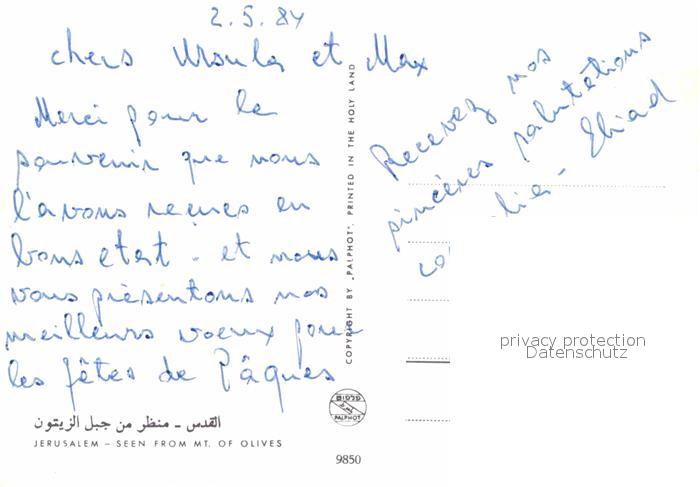 2.5.84
chers Ursula et Max
Merci pour le
souvenir que nous
l'avons reçues en
bons etat - et nous
vous présentons nos
meilleurs voeux pour
les fêtes de Pâques
Recevez nos
sincères salutations
Eliad
COPYRIGHT BY „PALPHOT", PRINTED IN THE HOLY LAND
privacy protection
Datenschutz
PALPHOT
القدس ـ منظر من جبل الزيتون
JERUSALEM – SEEN FROM MT. OF OLIVES
9850